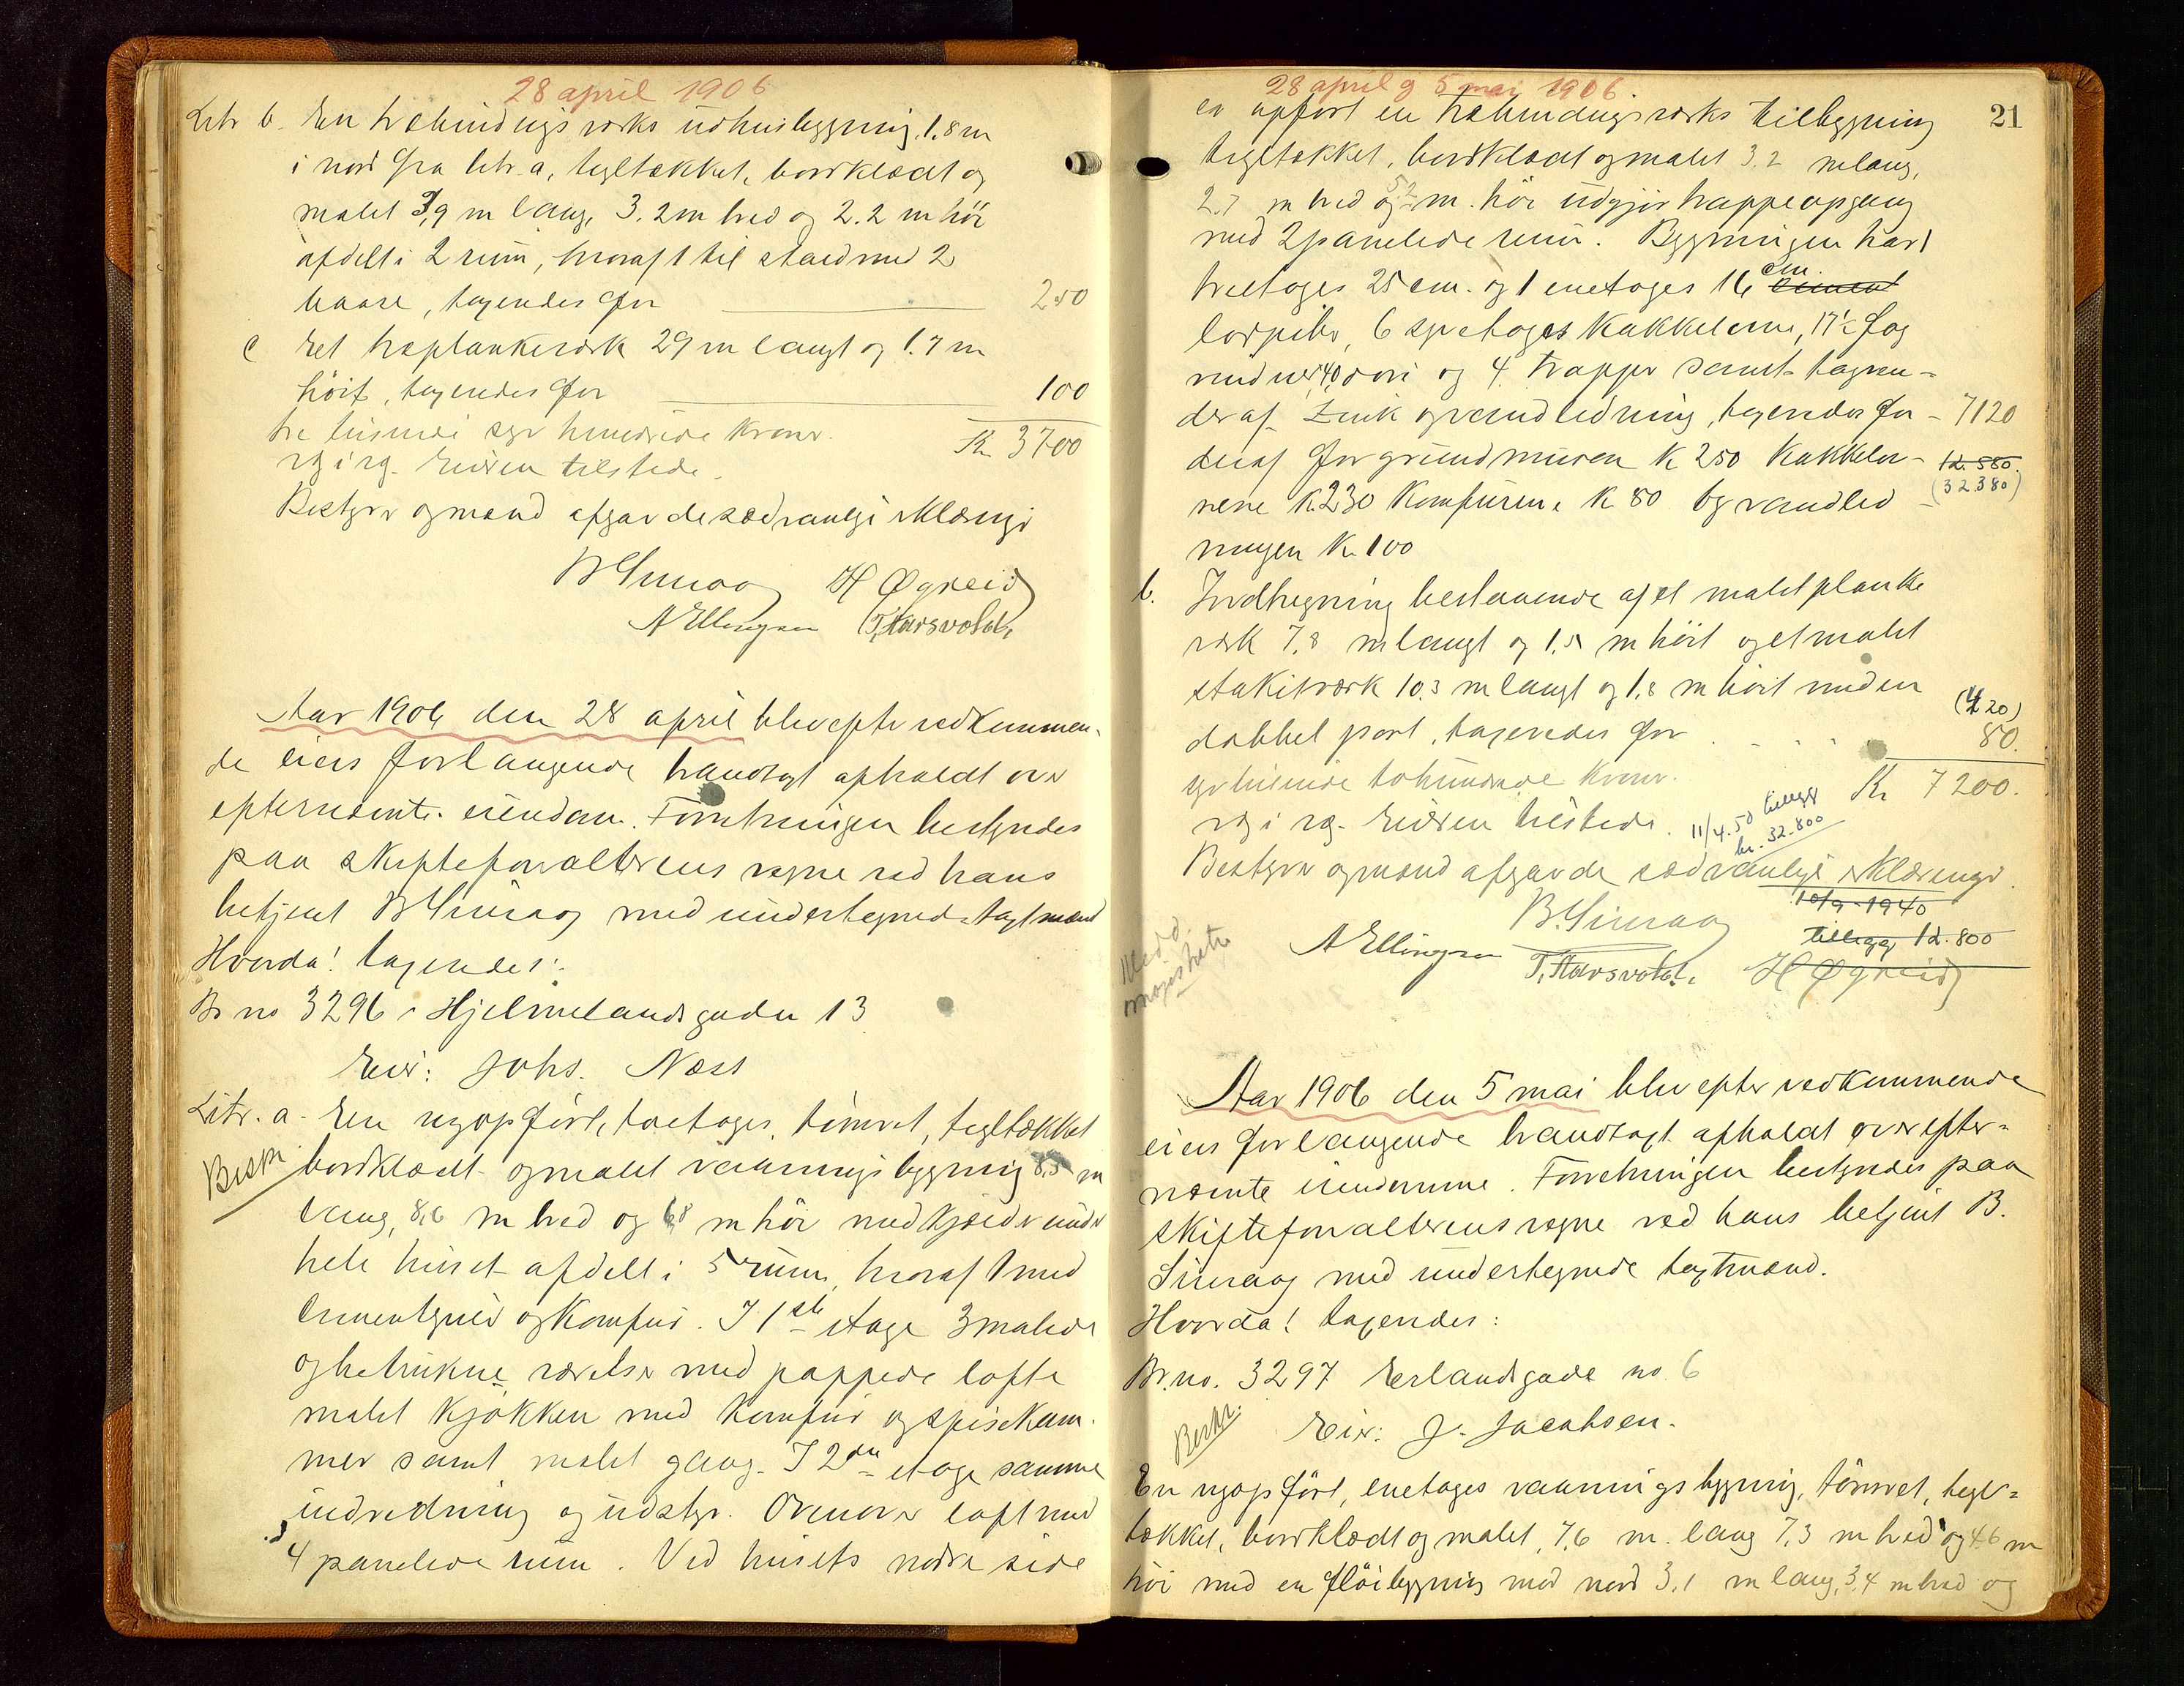 28 april 1906
Litr b. En træbindingsverks udhusbygning 1.8 m
i nord fra litr. a, tegltækket, bordklædt og
malet 3,9 m lang, 3.2 m bred og 2.2 m höi
afdelt i 2 rum, hvoraf 1 til stald med 2
baase, taxeredes for 250
c Et træplankeværk 29 m langt og 1.7 m
höit, taxeredes for 100
tre tusinde syv hundrede kroner. Kr 3700
Eieren tilstede.
Bestyrer og mænd afgav de sædvanlige erklæringer
H Øgreid
A Ellingsen T. Harsvold.
Aar 1906 den 28 april blev efter vedkommen-
de eiers forlangende brandtaxt afholdt over
efternævnte eiendom. Forretningen bestyredes
paa skifteforvalterens vegne ved hans
betjent med undertegnede taxtmænd
Hvorda! taxeredes:
Br no 3296 Hjelmelandsgaden 13
Eier: Johs. Næss
Litr. a. En nyopfört, toetages, tömret, tegltækket
Beskr
bordklædt og malet vaaningsbygning 8.5 m
lang, 8,6 m bred og 6,8 m höi med kjælder under
hele huset afdelt i 5 rum, hvoraf 1 med
cementgulv og komfur. I 1ste etage 3 malede
og betrukne værelser med pappede lofte
malet kjøkken med komfur og spisekam-
mer samt malet gang. I 2den etage samme
indredning og udstyr. Ovenover loft med
4 panelede rum. Ved husets nordre side
28 april og 5 mai 1906
21
er opfört en træbindingsverks tilbygning
tegltækket, bordklædt og malet 3.2 m lang,
2.7 m bred og 5.2 m. höi udgjör trappeopgang
med 2 panelede rum. Bygningen har 1
treetages 25 cm. og 1 enetages 16 cm.
lörpiber, 6 syvetages kakkelovne, 17 1/2 fag
vinduer, 40 döre og 4 trapper samt tagren-
der af zink og vandledning, taxeredes for - 7120
deraf for grundmuren K 250 kakkelov- 12.580.
(32.380)
nene K. 230 komfurene K 80 og vandled
ningen Kr. 100
b. Indhegning bestaaende af et malet planke
værk 7,8 m langt og 1.5 m höit og et malet
stakitværk 10.3 m langt og 1,8 m höit med en
(420)
dobbel port, taxeredes for 80.
syv tusinde tohundrede kroner. Kr 7200.
Eieren tilstede. 11/4.50 tillegg
kr. 32.800
Bestyrer og mænd afgav de sædvanlige erklæringer.
10/9-1940
tillegg 12.800
A Ellingsen T. Harsvold. H Øgreid
Aar 1906 den 5 mai blev efter vedkommende
eiers forlangende brandtaxt afholdt over efter-
nævnte eiendomme. Forretningen bestyredes paa
skifteforvalterens vegne ved hans betjent B.
med undertegnede taxtmænd.
Hvorda! taxeredes:
Br. no. 3297 Erlandsgade no. 6
Beskr.
Eier: J. Jacobsen.
En nyopfört, enetages vaaningsbygning, tömret, tegl-
tækket, bordklædt og malet, 7,6 m. lang 7,3 m bred og 4.6 m
höi med en flöibygning mod nord 3,1 m lang, 3,4 m bred og